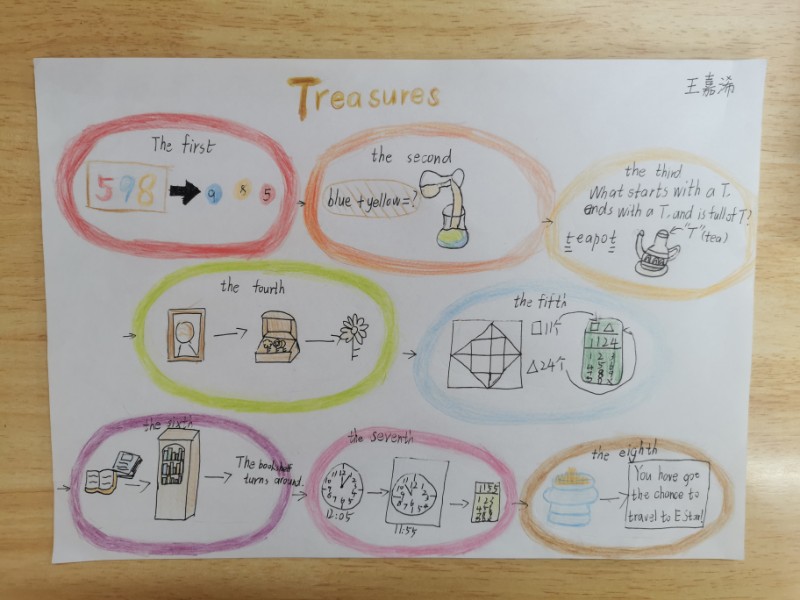 Treasures
王嘉浠
The first
598
9 8 5
the second
blue + yellow = ?
the third
What starts with a T,
ends with a T, and is full of T?
teapot
"T"(tea)
the fourth
the fifth
□11个
△24个
□ △
1124
the sixth
The bookshelf
turns around.
the seventh
12:05
11:55
1155
the eighth
You have got
the chance to
travel to E Star!